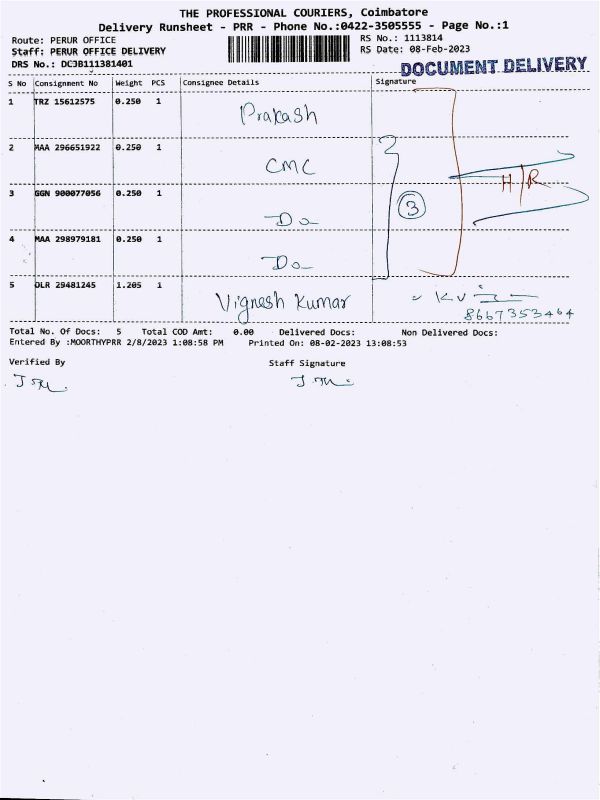 THE PROFESSIONAL COURIERS, Coimbatore
Delivery Runsheet - PRR - Phone No.:0422-3505555 - Page No.:1
Route: PERUR OFFICE RS No.: 1113814
Staff: PERUR OFFICE DELIVERY RS Date: 08-Feb-2023
DRS No.: DC3B111381401 DOCUMENT DELIVERY
S No Consignment No Weight PCS Consignee Details Signature
1 TRZ 15612575 0.250 1 Prakash
2 MAA 296651922 0.250 1 CMC
H/R
3 GGN 900077056 0.250 1 Do 3
4 MAA 298979181 0.250 1 Do
5 DLR 29481245 1.205 1 Vignesh Kumar
8667353464
Total No. Of Docs: 5 Total COD Amt: 0.00 Delivered Docs: Non Delivered Docs:
Entered By :MOORTHYPRR 2/8/2023 1:08:58 PM Printed On: 08-02-2023 13:08:53
Verified By Staff Signature